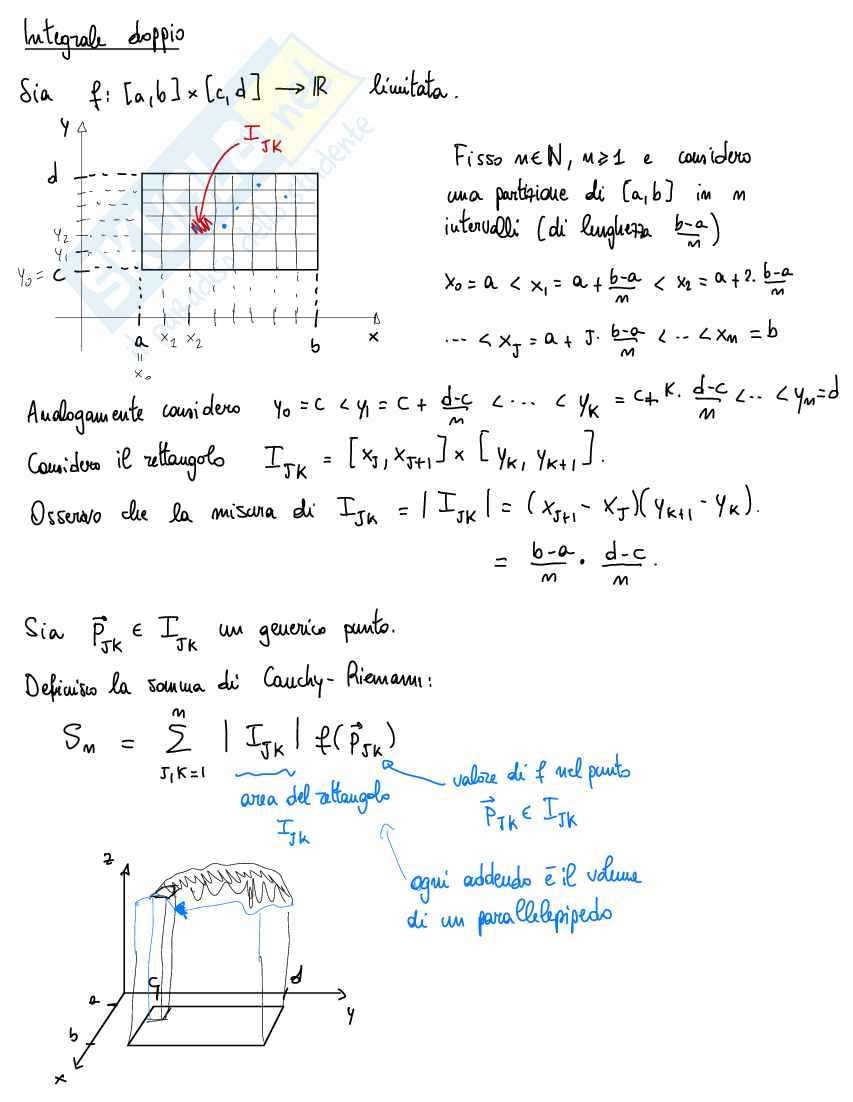 Integrale doppio
Sia f: [a,b] × [c,d] → ℝ limitata.
y
I_JK
d
y₂
y₁
y₀ = c
a x₁ x₂ b x
"
x₀
Fisso n ∈ N, n ⩾ 1 e considero
una partizione di [a,b] in n
intervalli (di lunghezza (b-a)/n)
x₀ = a < x₁ = a + (b-a)/n < x₂ = a + 2·(b-a)/n
... < x_J = a + J·(b-a)/n < ... < x_n = b
Analogamente considero y₀ = c < y₁ = c + (d-c)/n < ... < y_K = c + K·(d-c)/n < ... < y_n = d
Considero il rettangolo I_JK = [x_J, x_J+1] × [y_K, y_K+1].
Osservo che la misura di I_JK = |I_JK| = (x_J+1 - x_J)(y_K+1 - y_K).
= (b-a)/n · (d-c)/n.
Sia P⃗_JK ∈ I_JK un generico punto.
Definisco la somma di Cauchy-Riemann:
S_n = Σ_{J,K=1}^{n} |I_JK| f(P⃗_JK)
area del rettangolo
I_JK
valore di f nel punto
P⃗_JK ∈ I_JK
ogni addendo è il volume
di un parallelepipedo
z
c
d
a
y
b
x
SKUOLA.net
il paradiso dello studente